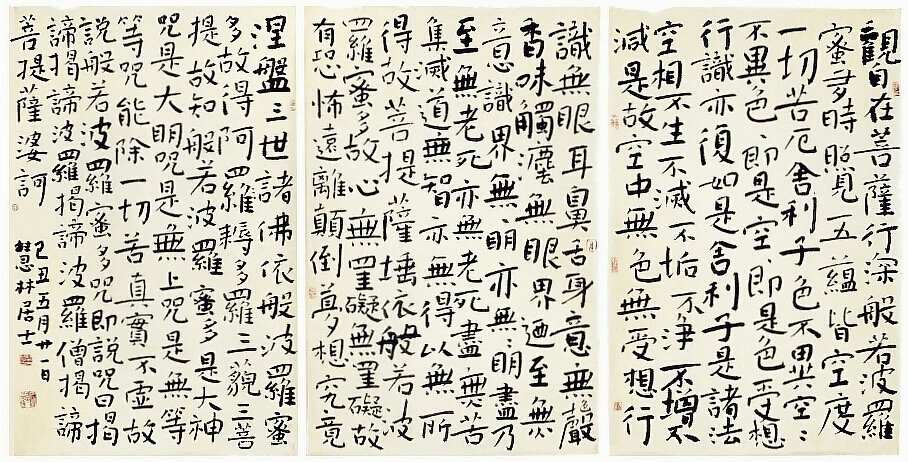 觀自在菩薩行深般若波羅
蜜多時照見五蘊皆空度
一切苦厄舍利子色不異空〻
不異色〻即是空〻即是色受想
行識亦復如是舍利子是諸法
空相不生不滅不垢不淨不增不
減是故空中無色無受想行
識無眼耳鼻舌身意無色聲
香味觸灋無眼界迺至無
意識界無〻明亦無〻明盡乃
至無老死亦無老死盡無苦
集滅道無智亦無得以無所
得故菩提薩埵依般若波
羅蜜多故心無罣礙無罣礙故
有恐怖遠離顛倒夢想究竟
涅盤三世諸佛依般波羅蜜
多故得阿羅耨多羅三藐三菩
提故知般若波羅蜜多是大神
咒是大明咒是無上咒是無等
等咒能除一切苦真實不虛故
說般若波羅蜜多咒即說咒曰揭
諦揭諦波羅揭諦波羅僧揭諦
菩提薩婆訶
己丑五月廿一日
慧林居士